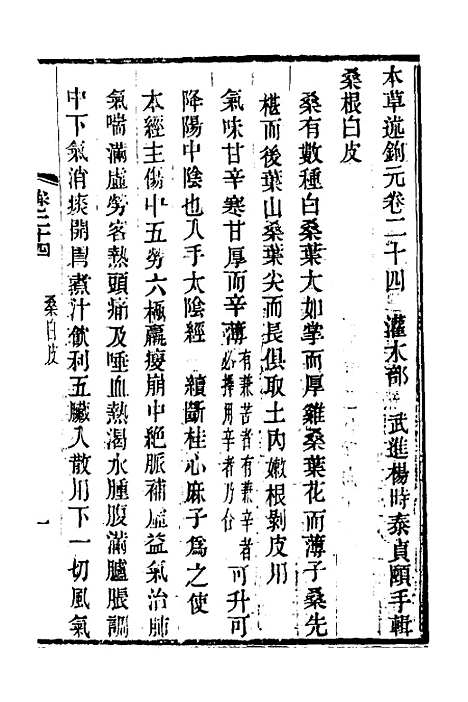 本草述鉤元卷二十四 灌木部 武進楊時泰貞頤手輯
桑根白皮
桑有數種白桑葉大如掌而厚雞桑葉花而薄子桑先
椹而後葉山桑葉尖而長俱取土內嫩根剝皮用
氣味甘辛寒甘厚而辛薄有兼苦者有兼辛者必擇用辛者乃合可升可
降陽中陰也入手太陰經 續斷桂心麻子爲之使
本經主傷中五勞六極羸瘦崩中絕脈補虛益氣治肺
氣喘滿虛勞客熱頭痛及唾血熱渴水腫腹滿臚脹調
中下氣消痰開胃煮汁飲利五臟入散用下一切風氣
卷二十四 桑白皮 一